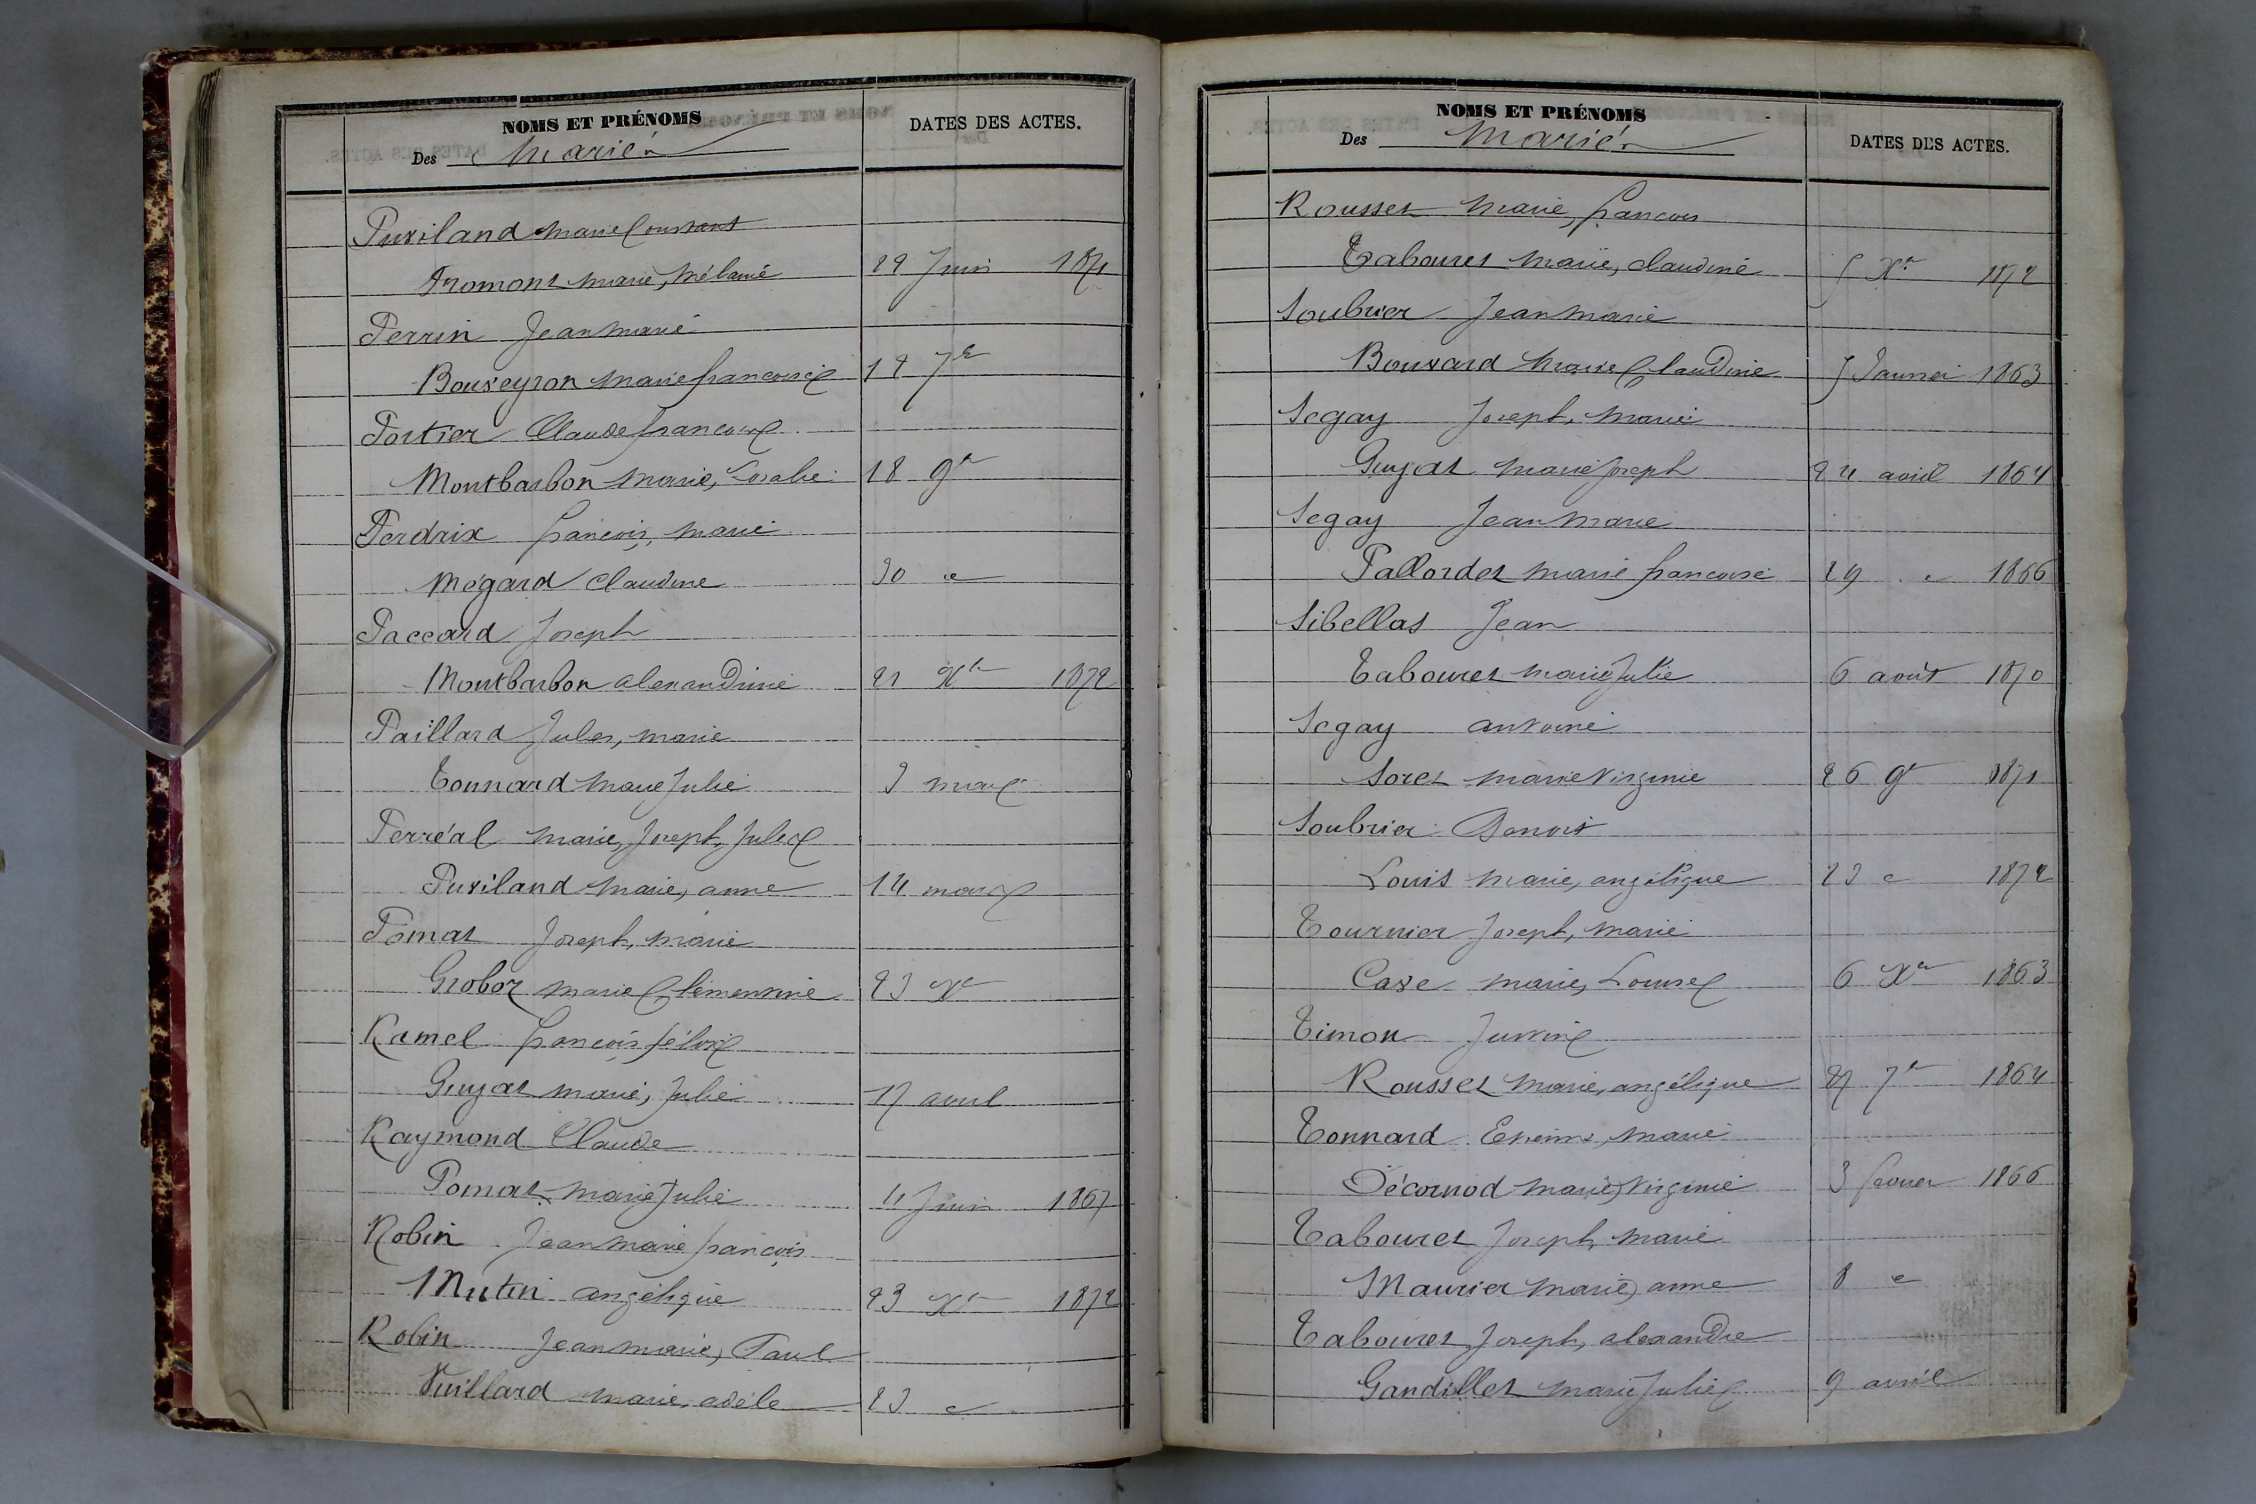 NOMS ET PRÉNOMS
Des Mariés
DATES DES ACTES.
Puviland marie Constant
Fromont marie, Mélanie 22 Juin 1871
Perrin Jean marie
Bouveyron marie françoise 12 7bre
Portier Claude françois
Montbarbon marie, Rosalie 18 9bre
Perdrix françois, marie
Mégard Claudine 30 „
Paccard Joseph
Montbarbon alexandrine 21 Xbre 1872
Paillard Jules, marie
Tonnard marie Julie 3 mars
Perréal marie, Joseph, Jules
Puviland marie, anne 14 mars
Pomat Joseph, marie
Groboz marie Clémentine 23 Xbre
Ramel françois, félix
Guyat marie, Julie 17 avril
Raymond Claude
Pomat marie Julie 4 Juin 1867
Robin Jean marie françois
Mutin angélique 23 Xbre 1872
Robin Jean marie, Paul
Vuillard marie, adèle 23 „
NOMS ET PRÉNOMS
Des Mariés
DATES DES ACTES.
Rousset marie, françois
Tabouret marie, claudine 5 Xbre 1872
Soubrier Jean marie
Bouvard marie Claudine 5 Janvier 1863
Segay Joseph, marie
Guyat marie Joseph 24 avril 1864
Segay Jean marie
Pallordet marie françoise 29 „ 1866
Sibellas Jean
Tabouret marie Julie 6 août 1870
Segay antoine
Soret marie Virginie 26 9bre 1871
Soubrier Benoit
Louis marie, angélique 23 „ 1872
Tournier Joseph, marie
Cave marie, Louise 6 Xbre 1863
Timon Justin
Rousset marie, angélique 27 7bre 1864
Tonnard Etienne, marie
Décornod marie, Virginie 3 févrer 1866
Tabouret Joseph, marie
Maurier marie, anne 8 „
Tabouret Joseph, alexandre
Gandillet marie Julie 9 avril